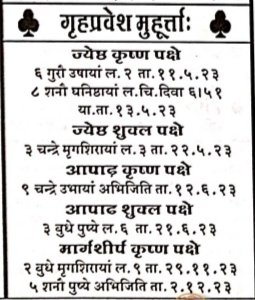 गृहप्रवेश मुहूर्त्ताः
ज्येष्ठ कृष्ण पक्षे
६ गुरौ उषायां ल. २ ता. ११.५.२३
८ शनौ घनिष्ठायां ल.चि.दिवा ६।५१
या.ता.१३.५.२३
ज्येष्ठ शुक्ल पक्षे
३ चन्द्रे मृगशिरायां ल.३ ता.२२.५.२३
आषाढ़ कृष्ण पक्षे
९ चन्द्रे उभायां अभिजिति ता.१२.६.२३
आषाढ शुक्ल पक्षे
३ बुधे पुष्ये ल.६ ता. २१.६.२३
मार्गशीर्ष कृष्ण पक्षे
२ बुधे मृगशिरायां ल.९ ता.२९.११.२३
५ शनौ पुष्ये अभिजिति ता.२.१२.२३